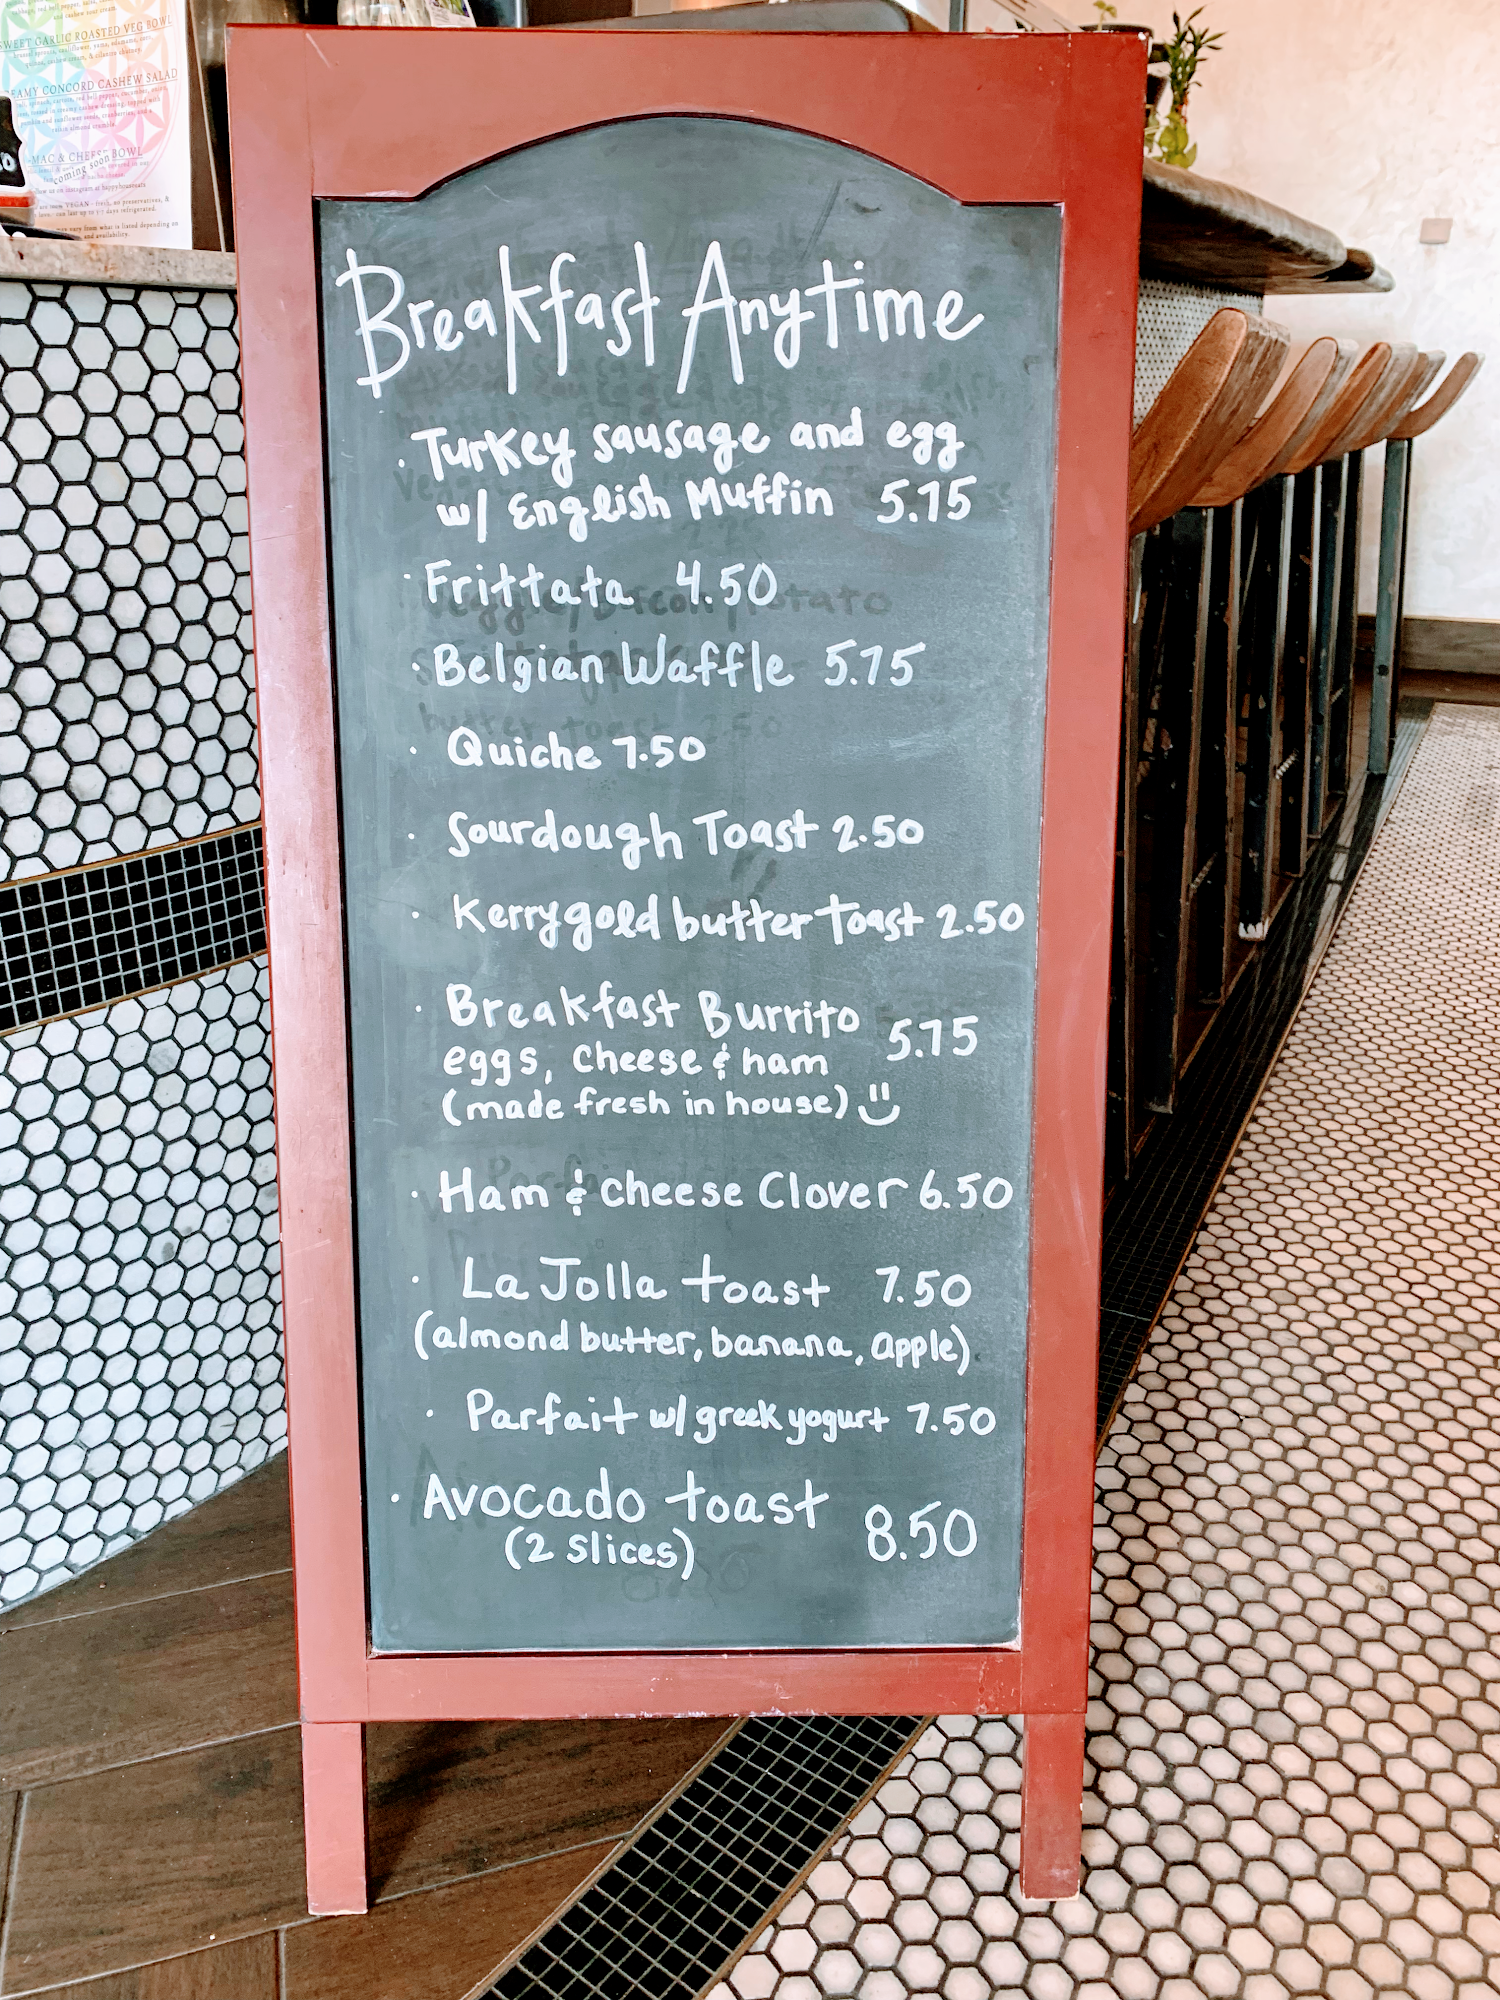 SWEET GARLIC ROASTED VEG BOWL
CREAMY CONCORD CASHEW SALAD
MAC & CHEESE BOWL
coming soon
Breakfast Anytime
· Turkey sausage and egg
w/ English Muffin 5.75
· Frittata 4.50
· Belgian Waffle 5.75
· Quiche 7.50
· Sourdough Toast 2.50
· Kerrygold butter toast 2.50
· Breakfast Burrito 5.75
eggs, cheese & ham
(made fresh in house)
· Ham & cheese Clover 6.50
· La Jolla toast 7.50
(almond butter, banana, apple)
· Parfait w/ greek yogurt 7.50
· Avocado toast 8.50
(2 slices)